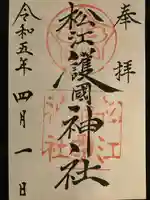 奉拝
松江護國神社
令和五年四月一日
松江
神社